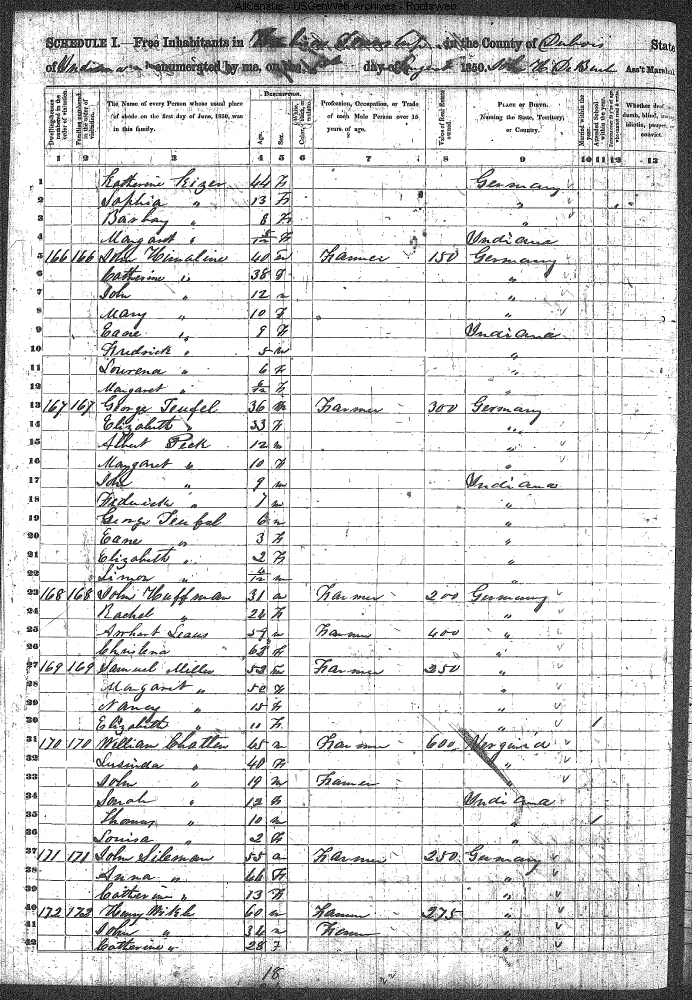 AllCensus - USGenWeb Archives - Rootsweb
SCHEDULE I.—Free Inhabitants in Township in the County of Dubois State
of Indiana enumerated by me, on the day of August 1850. Ass't Marshal
DESCRIPTION.
Dwelling-houses numbered in the order of visitation. Families numbered in the order of visitation. The Name of every Person whose usual place of abode on the first day of June, 1850, was in this family. Age. Sex. Color, Profession, Occupation, or Trade of each Male Person over 15 years of age. Value of Real Estate owned. PLACE OF BIRTH. Naming the State, Territory, or Country. Married within the year. Attended School within the year. Whether deaf dumb, blind, idiotic, pauper convict
1 2 3 4 5 6 7 8 9 10 11 12 13
1 Katherine Kizer 44 F Germany
2 Sophia " 13 F "
3 Barbay " 8 F "
4 Margaret " /12 F Indiana
5 166 166 John Himaline 40 m Farmer 150 Germany
6 Catherine " 38 F "
7 John " 12 m "
8 Mary " 10 F "
9 Eane " 9 F Indiana
10 Fredrick " 5 m "
11 Lourena " 6 F "
12 Margaret " /12 F "
13 167 167 George Teufel 36 m Farmer 300 Germany
14 Elizabeth " 33 F "
15 Albert Peck 12 m "
16 Margaret " 10 F "
17 John " 9 m Indiana
18 Fedrick " 7 m "
19 George Teufel 6 m "
20 Eane " 3 F "
21 Elizabeth " 2 F "
22 Simon " /12 m "
23 168 168 John Huffman 31 m Farmer 200 Germany
24 Rachel " 24 F "
25 Leaus 59 m Farmer 400 "
26 Christena 63 F "
27 169 169 Samuel Miller 53 m Farmer 250 "
28 Margaret " 50 F "
29 Nancy " 15 F "
30 Elizabeth " 11 F " 1
31 170 170 William Chatten 45 m Farmer 600 Vergina
32 Lusinda " 40 F "
33 John " 19 m Framer "
34 Sarah " 12 F Indiana
35 Thomas " 10 m " 1
36 Louisa " 2 F "
37 171 171 John Sileman 55 m Farmer 250 Germany
38 Anna " 66 F "
39 Catherine " 13 F "
40 172 172 Henry 60 m Farmer 275 "
41 John " 34 m Farmer "
42 Catherine " 28 F "
18